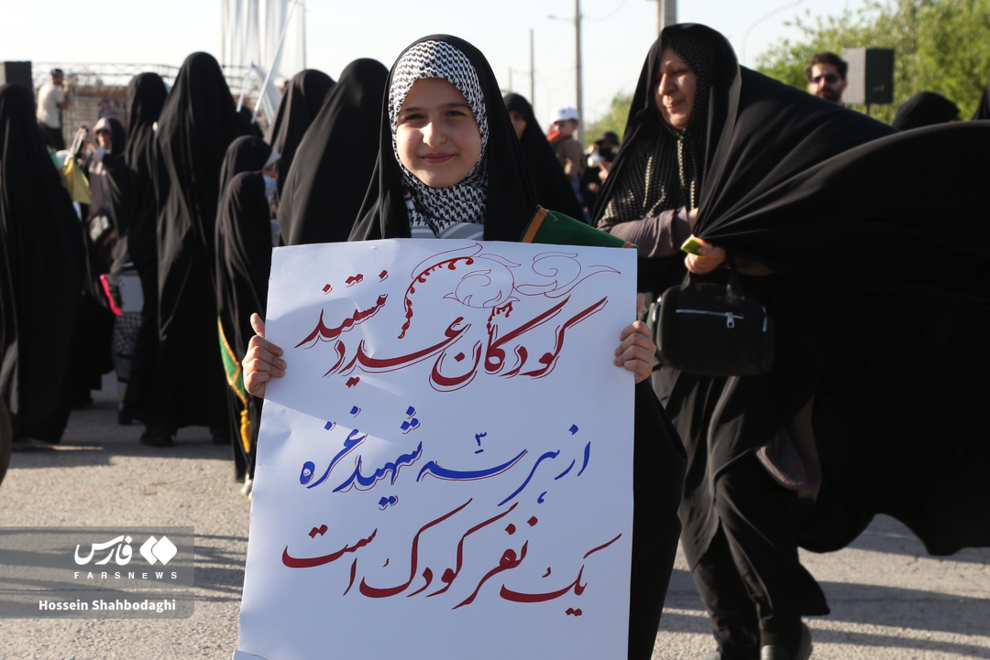 کودکان عدد نیستند
از هر سه ۳ شهید غزه
یک نفر کودک است
فارس
FARSNEWS
Hossein Shahbodaghi